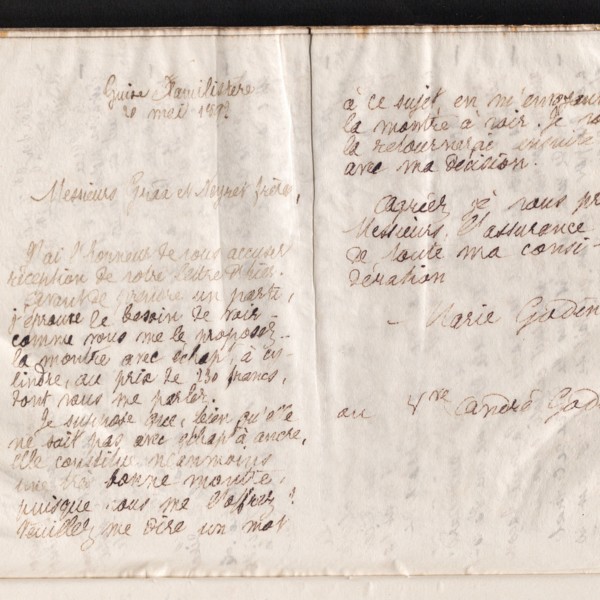 Guise Familistère
20 mai 189
Messieurs et Seynet frères,
J'ai l'honneur de vous accuser
réception de votre lettre d'hier.
Avant de prendre un parti,
j'éprouve le besoin de voir
comme vous me le proposez
la montre avec échap, à cy-
lindre, au prix de 230 francs,
dont vous me parlez.
Je suppose que, bien qu'elle
ne soit pas avec échapt à ancre,
elle constitue néanmoins
une très bonne montre,
puisque vous me l'offrez?
Veuillez me dire un mot
à ce sujet, en m'envoyant
la montre à voir. Je
la retournerai ensuite
avec ma décision.
Agréez, je vous
Messieurs, l'assurance
de toute ma consi-
dération
Marie Godin
au Vve André God